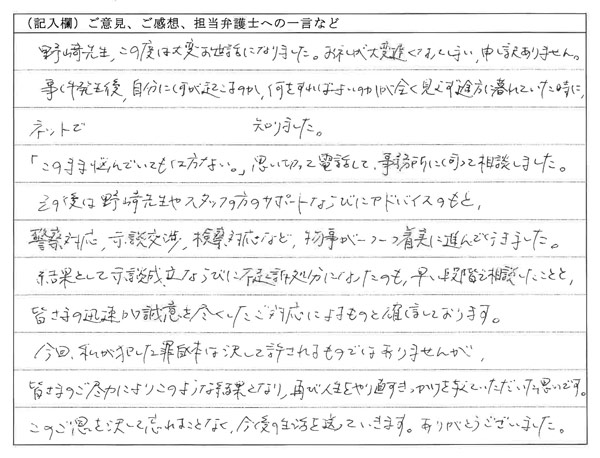 （記入欄）ご意見、ご感想、担当弁護士への一言など
野崎先生、この度は大変お世話になりました。お礼が大変遅くなってしまい、申し訳ありません。
事件発生後、自分に何が起こるのか、何をすればよいのかが全く見えず途方に暮れていた時に、
ネットで 知りました。
「このまま悩んでいても仕方ない。」思い切って電話して、事務所に伺って相談しました。
その後は野崎先生やスタッフの方のサポートならびにアドバイスのもと、
警察対応、示談交渉、検察対応など、物事が一つ一つ着実に進んでいきました。
結果として示談成立ならびに不起訴処分になったのも、早い段階で相談したことと、
皆さまの迅速かつ誠意を尽くしたご対応によるものと確信しております。
今回、私が犯した罪自体は決して許されるものではありませんが、
皆さまのご尽力によりこのような結果となり、再び人生をやり直すきっかけを与えていただいた思いです。
このご恩を決して忘れることなく、今後の生活を送っていきます。ありがとうございました。